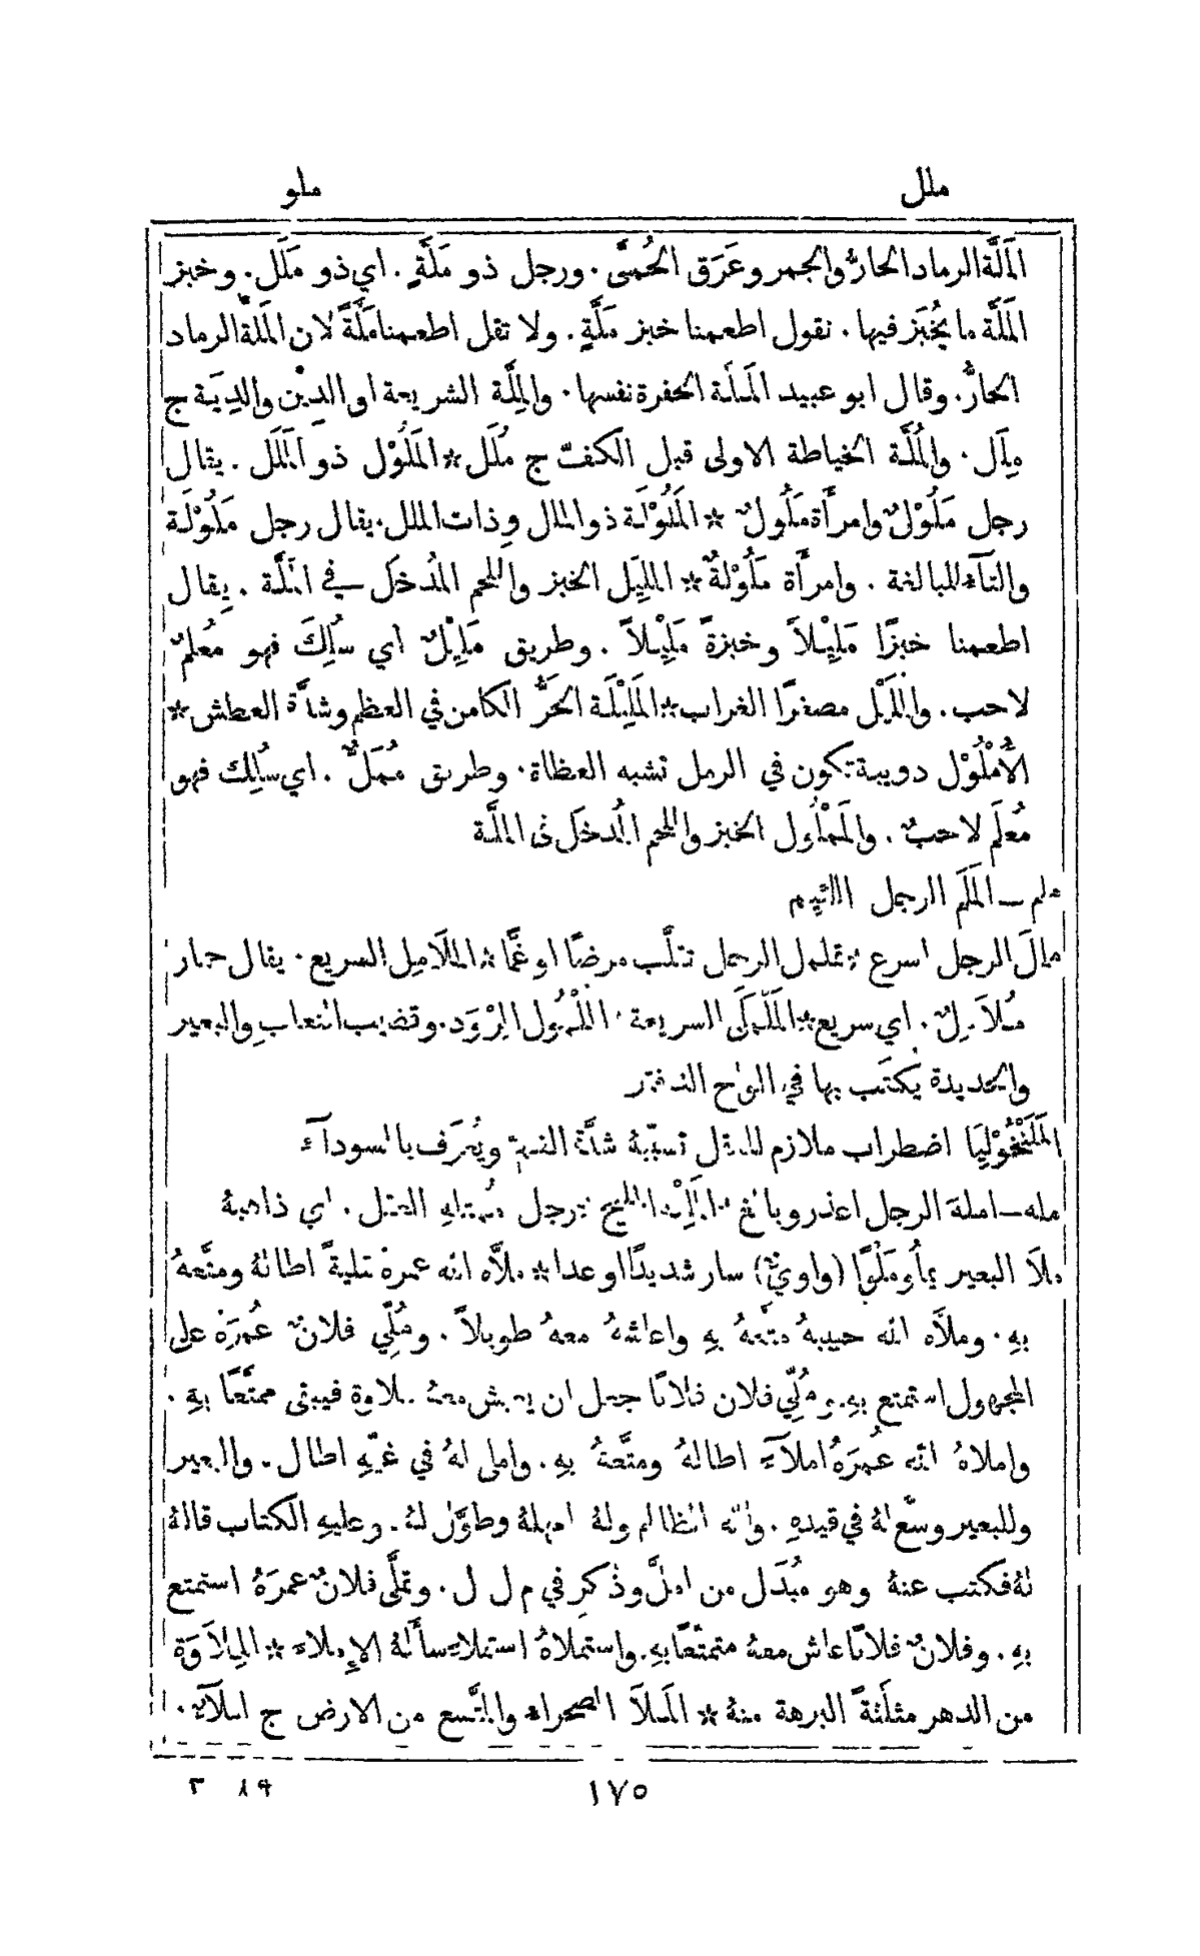 ملل
ملو
المَلَّة الرماد الحارُّ والجمر وعَرَق الحُمَّى. ورجل ذو مَلَّةٍ. اي ذو مَلَل. وخبز
المَلَّة ما يُخبَز فيها. نقول اطعمنا خبز مَلَّةٍ. ولا تقل اطعمنا مَلَّةً لان المَلَّة الرماد
الحارُّ. وقال ابو عبيد المَلَّة الحفرة نفسها. والمِلَّة الشريعة او الدِيْن والدِيَة ج
مِلَل. والمُلَّة الخياطة الاولى قبل الكفّ ج مُلَل * المَلُوْل ذو المَلَل. يقال
رجل مَلُوْلٌ وامرأَة مَلُولٌ * المَلُوْلَة ذو الملل وذات الملل. يقال رجل مَلُوْلَة
والتآء للمبالغة. وامرأَة مَلُوْلةٌ * المليل الخبز واللحم المُدخَل في المَلَّة. يقال
اطعمنا خبزًا مَلِيْلاً وخبزةً مَلِيْلاً. وطريق مَلِيْلٌ اي سُلِكَ فهو مُعلَمٌ
لاحب. والمُلَيْل مصغرًا الغراب * المَلِيْلَة الحَرُّ الكامن في العظم وشدَّة العطش *
الأُمْلُوْل دويبة تكون في الرمل تشبه العظاة. وطريق مُمَلٌّ. اي سُلِك فهو
مُعلَم لاحبٌ. والمَملُول الخبز واللحم المُدخَل في الملَّة
ملم — المَلَم الرجل اللئيم
ملل الرجل اسرع * تململ الرجل تقلَّب مرضًا او غمًّا * المُلَامِل السريع. يقال حمار
مُلاَمِلٌ. اي سريع * المَلْمَلَى السريعة * المُلْمُول المِرْوَد. وقضيب الثعلب والبعير
والحديدة يُكتَب بها في الواح الدفتر
المَلَنْخُوْلِيَا اضطراب ملازم للعقل تسبّبهُ شدَّة الغم ويُعرَف بالسودآء
مله — امله الرجل اعذر وبالغ * المَلِيْه المليح * رجل مُمتله العقل. اي ذاهبهُ
ملاَ البعير يملو مَلْوًا (واويٌّ) سار شديدًا او عدا * ملاَّه الله عمرهُ تمليةً اطالهُ ومتَّعهُ
بهِ. وملاَّه الله حبيبهُ متّعهُ بهِ واعاشهُ معهُ طويلاً. ومُلِّي فلانٌ عُمرَهُ على
المجهول استمتع بهِ. ومُلِّي فلان فلانًا جعل ان يعيش معهُ ملاوة فيبقى ممتَّعًا بهِ.
واملاهُ الله عُمرَهُ املآءً اطالهُ ومتَّعهُ بهِ. واملى لهُ في غيّهِ اطال. والبعير
وللبعير وسَّع لهُ في قيدهِ. والله الظالم ولهُ امهلهُ وطوَّل لهُ. وعليهِ الكتاب قالهُ
لهُ فكتب عنهُ وهو مُبدَل من املَّ وذُكر في م ل ل. وتملَّى فلانٌ عمرَهُ استمتع
بهِ. وفلانٌ فلانًا عاش معهُ متمتّعًا بهِ. واستملاهُ استملآءً سأَلهُ الإملاء * المِلاَوَة
من الدهر مثلَّثةً البرهة منهُ * المَلاَ الصحراء والمتَّسع من الارض ج املآء.
١٧٥
٨٩ ٢